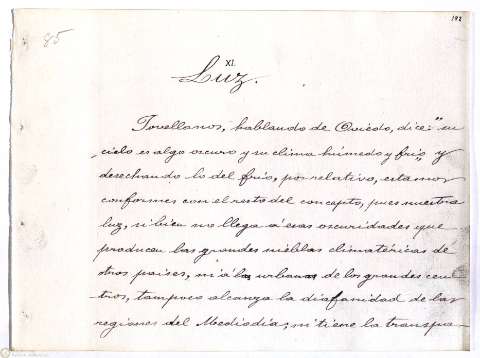 192
85
XI.
Luz.
Jovellanos, hablando de Oviedo, dice: "su
cielo es algo oscuro y su clima húmedo y frío", y
desechando lo del frío, por relativo, estamos
conformes con el resto del concepto, pues nuestra
luz, si bien no llega á esas oscuridades que
producen las grandes nieblas climatéricas de
otros paises, ni á las urbanas de los grandes cen
tros, tampoco alcanza la diafanidad de las
regiones del Mediodía; ni tiene la transpa-